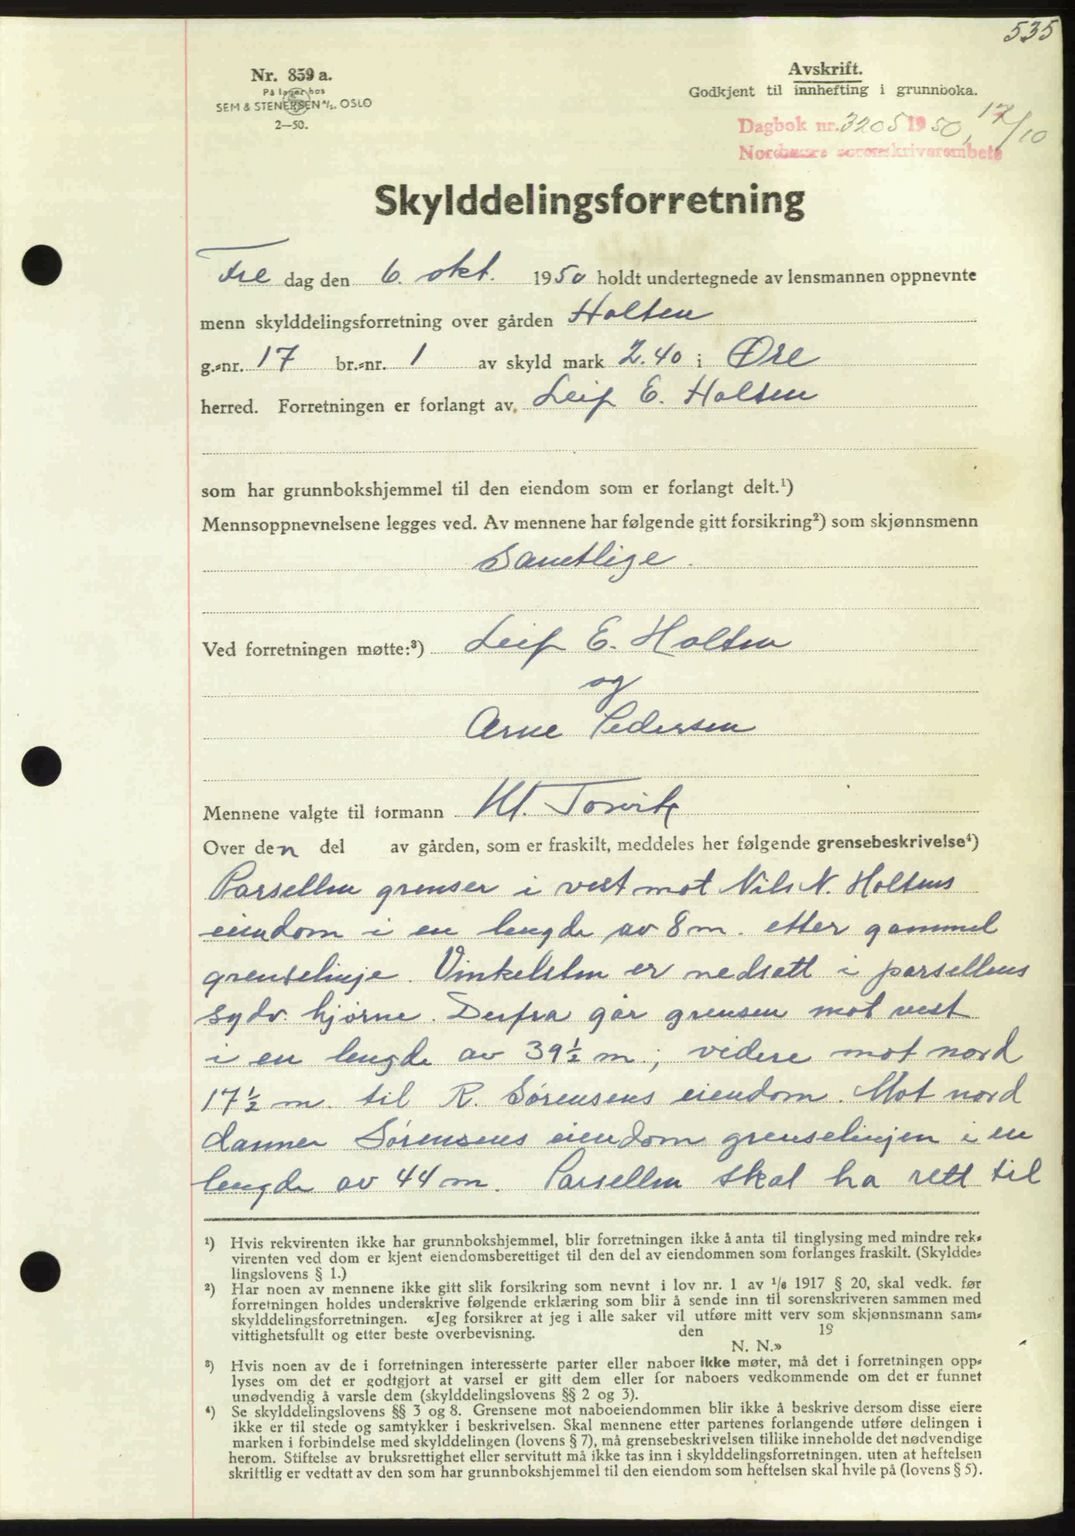 535
Nr. 859 a.
På lager hos
SEM & STENERSEN A/S. OSLO
2—50.
Avskrift.
Godkjent til innhefting i grunnboka.
Dagbok nr. 3205 1950, 17/10
Nordmøre sorenskriverembete
Skylddelingsforretning
Fre dag den 6. okt. 1950 holdt undertegnede av lensmannen oppnevnte
menn skylddelingsforretning over gården Holten
g.-nr. 17 br.-nr. 1 av skyld mark 2.40 i Øre
herred. Forretningen er forlangt av Leif E. Holten
som har grunnbokshjemmel til den eiendom som er forlangt delt.¹)
Mennsoppnevnelsene legges ved. Av mennene har følgende gitt forsikring²) som skjønnsmenn
Samtlige.
Ved forretningen møtte:³) Leif E. Holten
og
Arne Pedersen
Mennene valgte til formann Kr. Torvik
Over den del av gården, som er fraskilt, meddeles her følgende grensebeskrivelse⁴)
Parsellen grenser i vest mot Nils N. Holtens
eiendom i en lengde av 8 m. etter gammel
grenselinje. Vinkelsten er nedsatt i parsellens
sydv. hjørne. Derfra går grensen mot vest
i en lengde av 39 ½ m, videre mot nord
17 ½ m. til R. Sørensens eiendom. Mot nord
danner Sørensens eiendom grenselinjen i en
lengde av 44 m. Parsellen skal ha rett til
¹) Hvis rekvirenten ikke har grunnbokshjemmel, blir forretningen ikke å anta til tinglysing med mindre rek-
virenten ved dom er kjent eiendomsberettiget til den del av eiendommen som forlanges fraskilt. (Skyldde-
lingslovens § 1.)
²) Har noen av mennene ikke gitt slik forsikring som nevnt i lov nr. 1 av 1/6 1917 § 20, skal vedk. før
forretningen holdes underskrive følgende erklæring som blir å sende inn til sorenskriveren sammen med
skylddelingsforretningen. «Jeg forsikrer at jeg i alle saker vil utføre mitt verv som skjønnsmann sam-
vittighetsfullt og etter beste overbevisning. den 19
N. N.»
³) Hvis noen av de i forretningen interesserte parter eller naboer ikke møter, må det i forretningen opp-
lyses om det er godtgjort at varsel er gitt dem eller for naboers vedkommende om det er funnet
unødvendig å varsle dem (skylddelingslovens §§ 2 og 3).
⁴) Se skylddelingslovens §§ 3 og 8. Grensene mot naboeiendommen blir ikke å beskrive dersom disse eiere
ikke er til stede og samtykker i beskrivelsen. Skal mennene etter partenes forlangende utføre delingen i
marken i forbindelse med skylddelingen (lovens § 7), må grensebeskrivelsen tillike inneholde det nødvendige
herom. Stiftelse av bruksrettighet eller servitutt må ikke tas inn i skylddelingsforretningen. uten at heftelsen
skriftlig er vedtatt av den som har grunnbokshjemmel til den eiendom som heftelsen skal hvile på (lovens § 5).